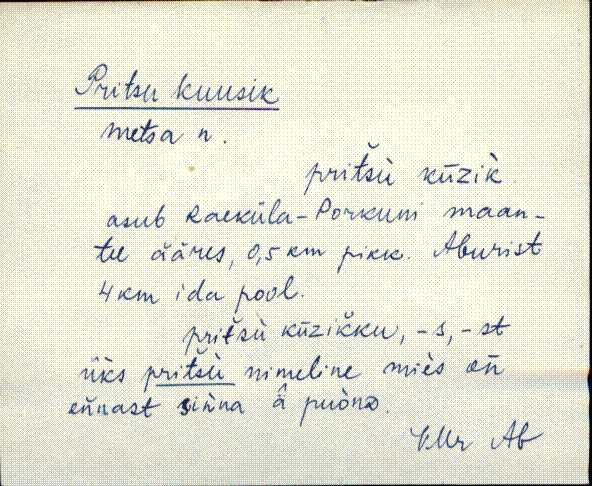 Pritsu kuusik
metsa n.
pritšù kūzik
asub Raeküla-Porkuni maan-
tee ääres, 0,5 km pikk. Aburist
4 km ida pool.
pritšù kūzikku, -s, -st
üks pritšù nimeline miès
eǹnast siǹna puòno
VMr Ab